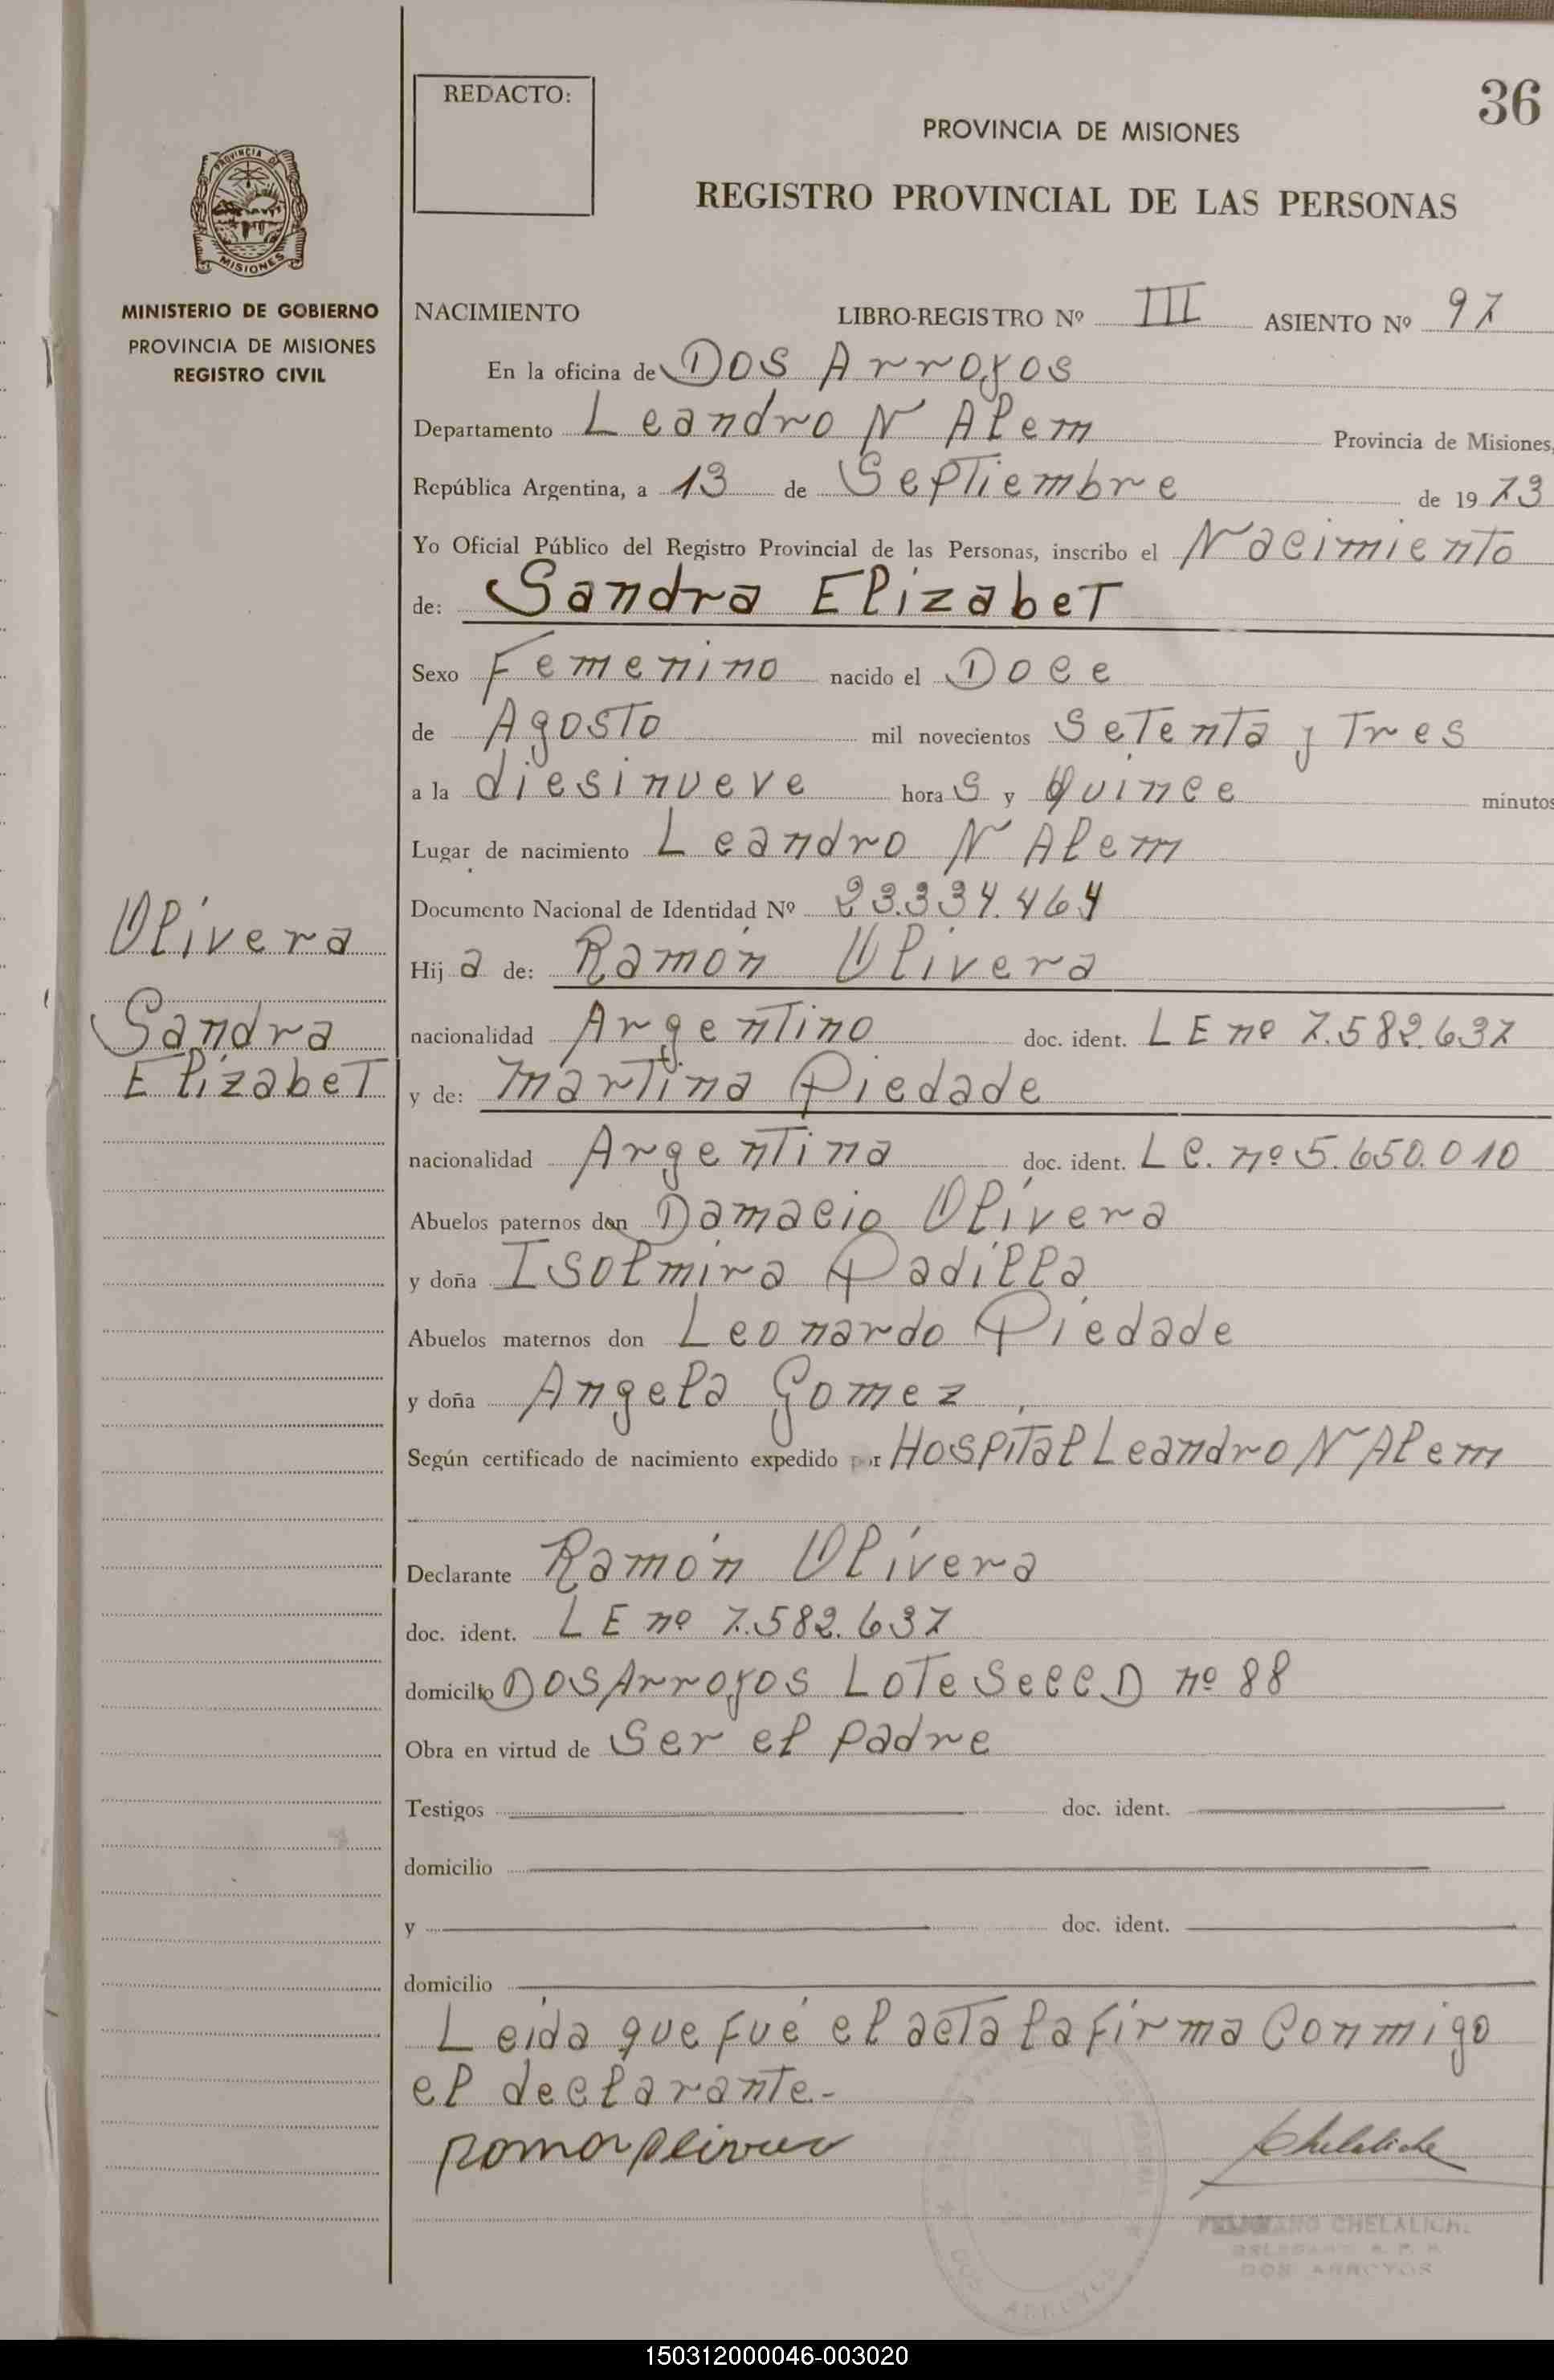 36
REDACTO:
PROVINCIA DE MISIONES
REGISTRO PROVINCIAL DE LAS PERSONAS
PROVINCIA DE
MISIONES
MINISTERIO DE GOBIERNO
PROVINCIA DE MISIONES
REGISTRO CIVIL
NACIMIENTO LIBRO-REGISTRO Nº III ASIENTO Nº 97
En la oficina de Dos Arroyos
Departamento Leandro N Alem Provincia de Misiones,
República Argentina, a 13 de Septiembre de 1973
Yo Oficial Público del Registro Provincial de las Personas, inscribo el Nacimiento
de: Sandra Elizabet
Sexo Femenino nacido el Doce
de Agosto mil novecientos Setenta y Tres
a la diesinueve horas y Quince minutos
Lugar de nacimiento Leandro N Alem
Documento Nacional de Identidad Nº 23.334.464
Olivera
Sandra
Elizabet
Hija de: Ramón Olivera
nacionalidad Argentino doc. ident. LE nº 7.582.637
y de: Martina Piedade
nacionalidad Argentina doc. ident. LC. nº 5.650.010
Abuelos paternos don Damacio Olivera
y doña Isolmira Padilla
Abuelos maternos don Leonardo Piedade
y doña Angela Gomez
Según certificado de nacimiento expedido por Hospital Leandro N Alem
Declarante Ramón Olivera
doc. ident. LE nº 7.582.637
domicilio Dos Arroyos Lote Secc D nº 88
Obra en virtud de Ser el padre
Testigos doc. ident.
domicilio
y doc. ident.
domicilio
Leida que fué el acta la firma Conmigo
el declarante.-
Chelaliche
CHELALICH.
DOS ARROYOS
DOS ARROYOS
150312000046-003020